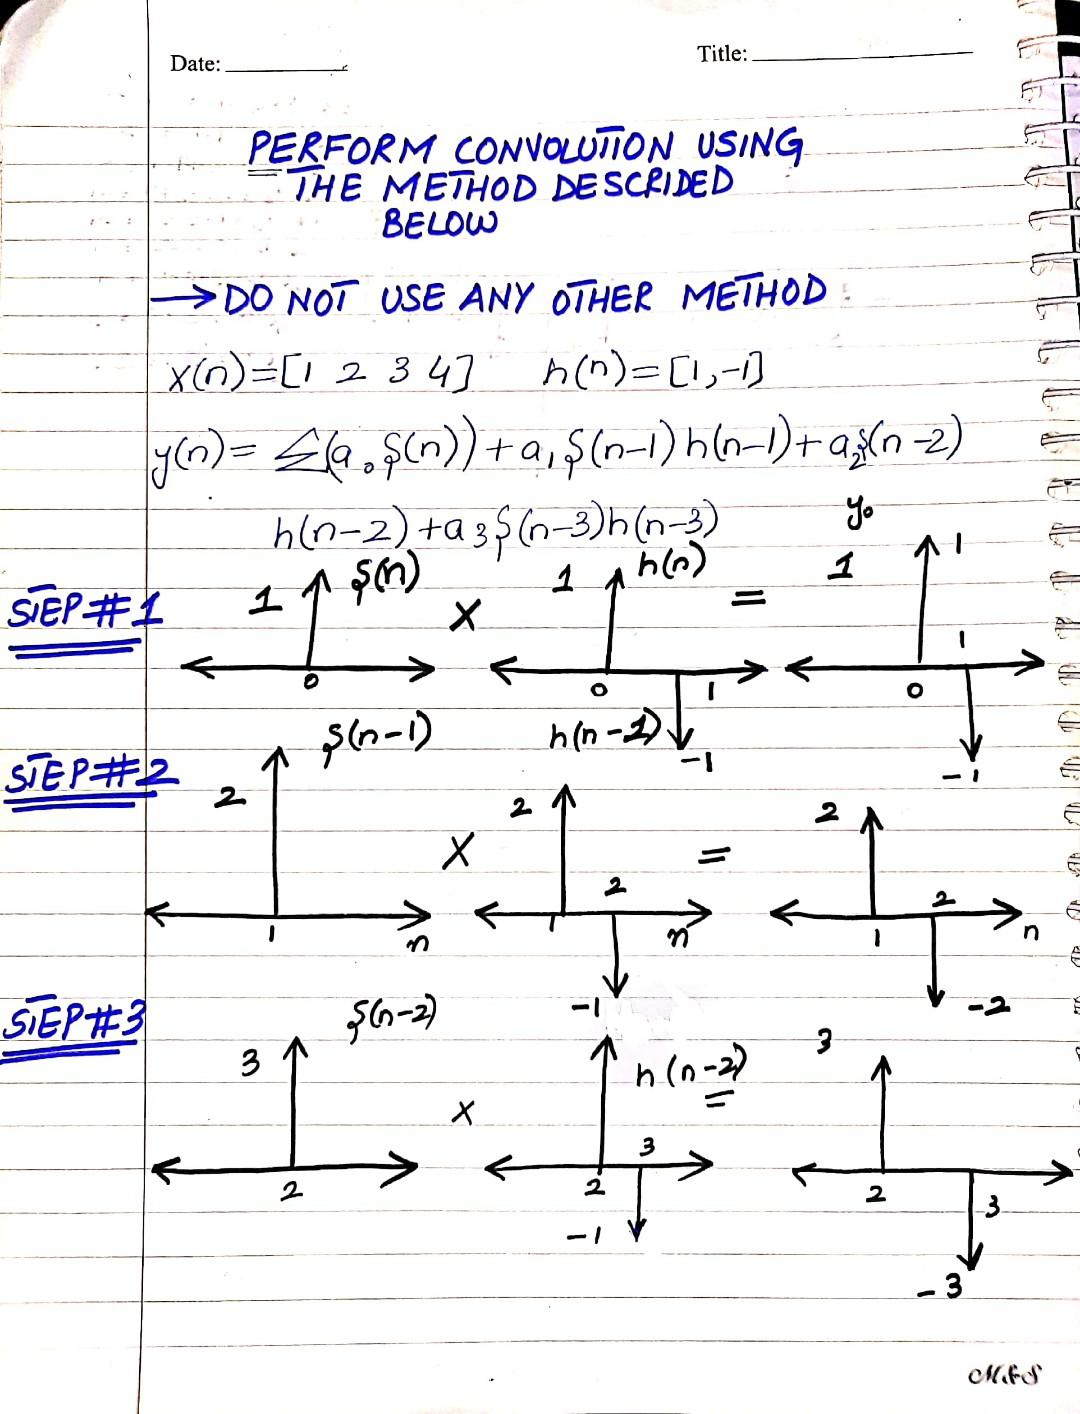 Date:
Title:
PERFORM CONVOLUTION USING
THE METHOD DESCRIDED
BELOW
→ DO NOT USE ANY OTHER METHOD.
x(n)=[1 2 3 4] h(n)=[1,-1]
y(n)= Σ(a₀δ(n))+a₁δ(n-1)h(n-1)+a₂δ(n-2)
h(n-2)+a₃δ(n-3)h(n-3)
STEP#1
1 δ(n) × 1 h(n) = 1 y₀ 1
0 0 1 0 1
-1 -1
STEP#2
δ(n-1) h(n-1)
2 × 2 = 2
1 n 1 2 n 1 2 n
-1 -2
STEP#3
δ(n-2) h(n-2) =
3 × 3
2 2 3 2 3
-1 -3